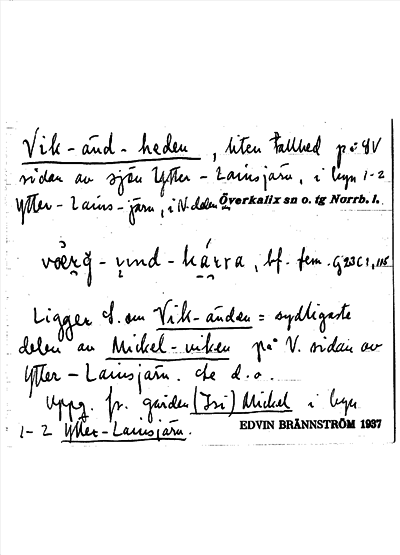 Vik-änd-heden, liten tallhed på SV
sidan av sjön Ytter-Lainsjärn, i byn 1-2
Ytter-Lains-järn, i N. delen Överkalix sn o. tg Norrb. l.
bf. fem.
Ligger S. om Vik-änden = sydligaste
delen av Mickel-viken på V. sidan av
Ytter-Lainsjärn. Se d.o.
Uppg. fr. gården (Isi) Mickel i byn
1-2 Ytter-Lainsjärn. EDVIN BRÄNNSTRÖM 1937